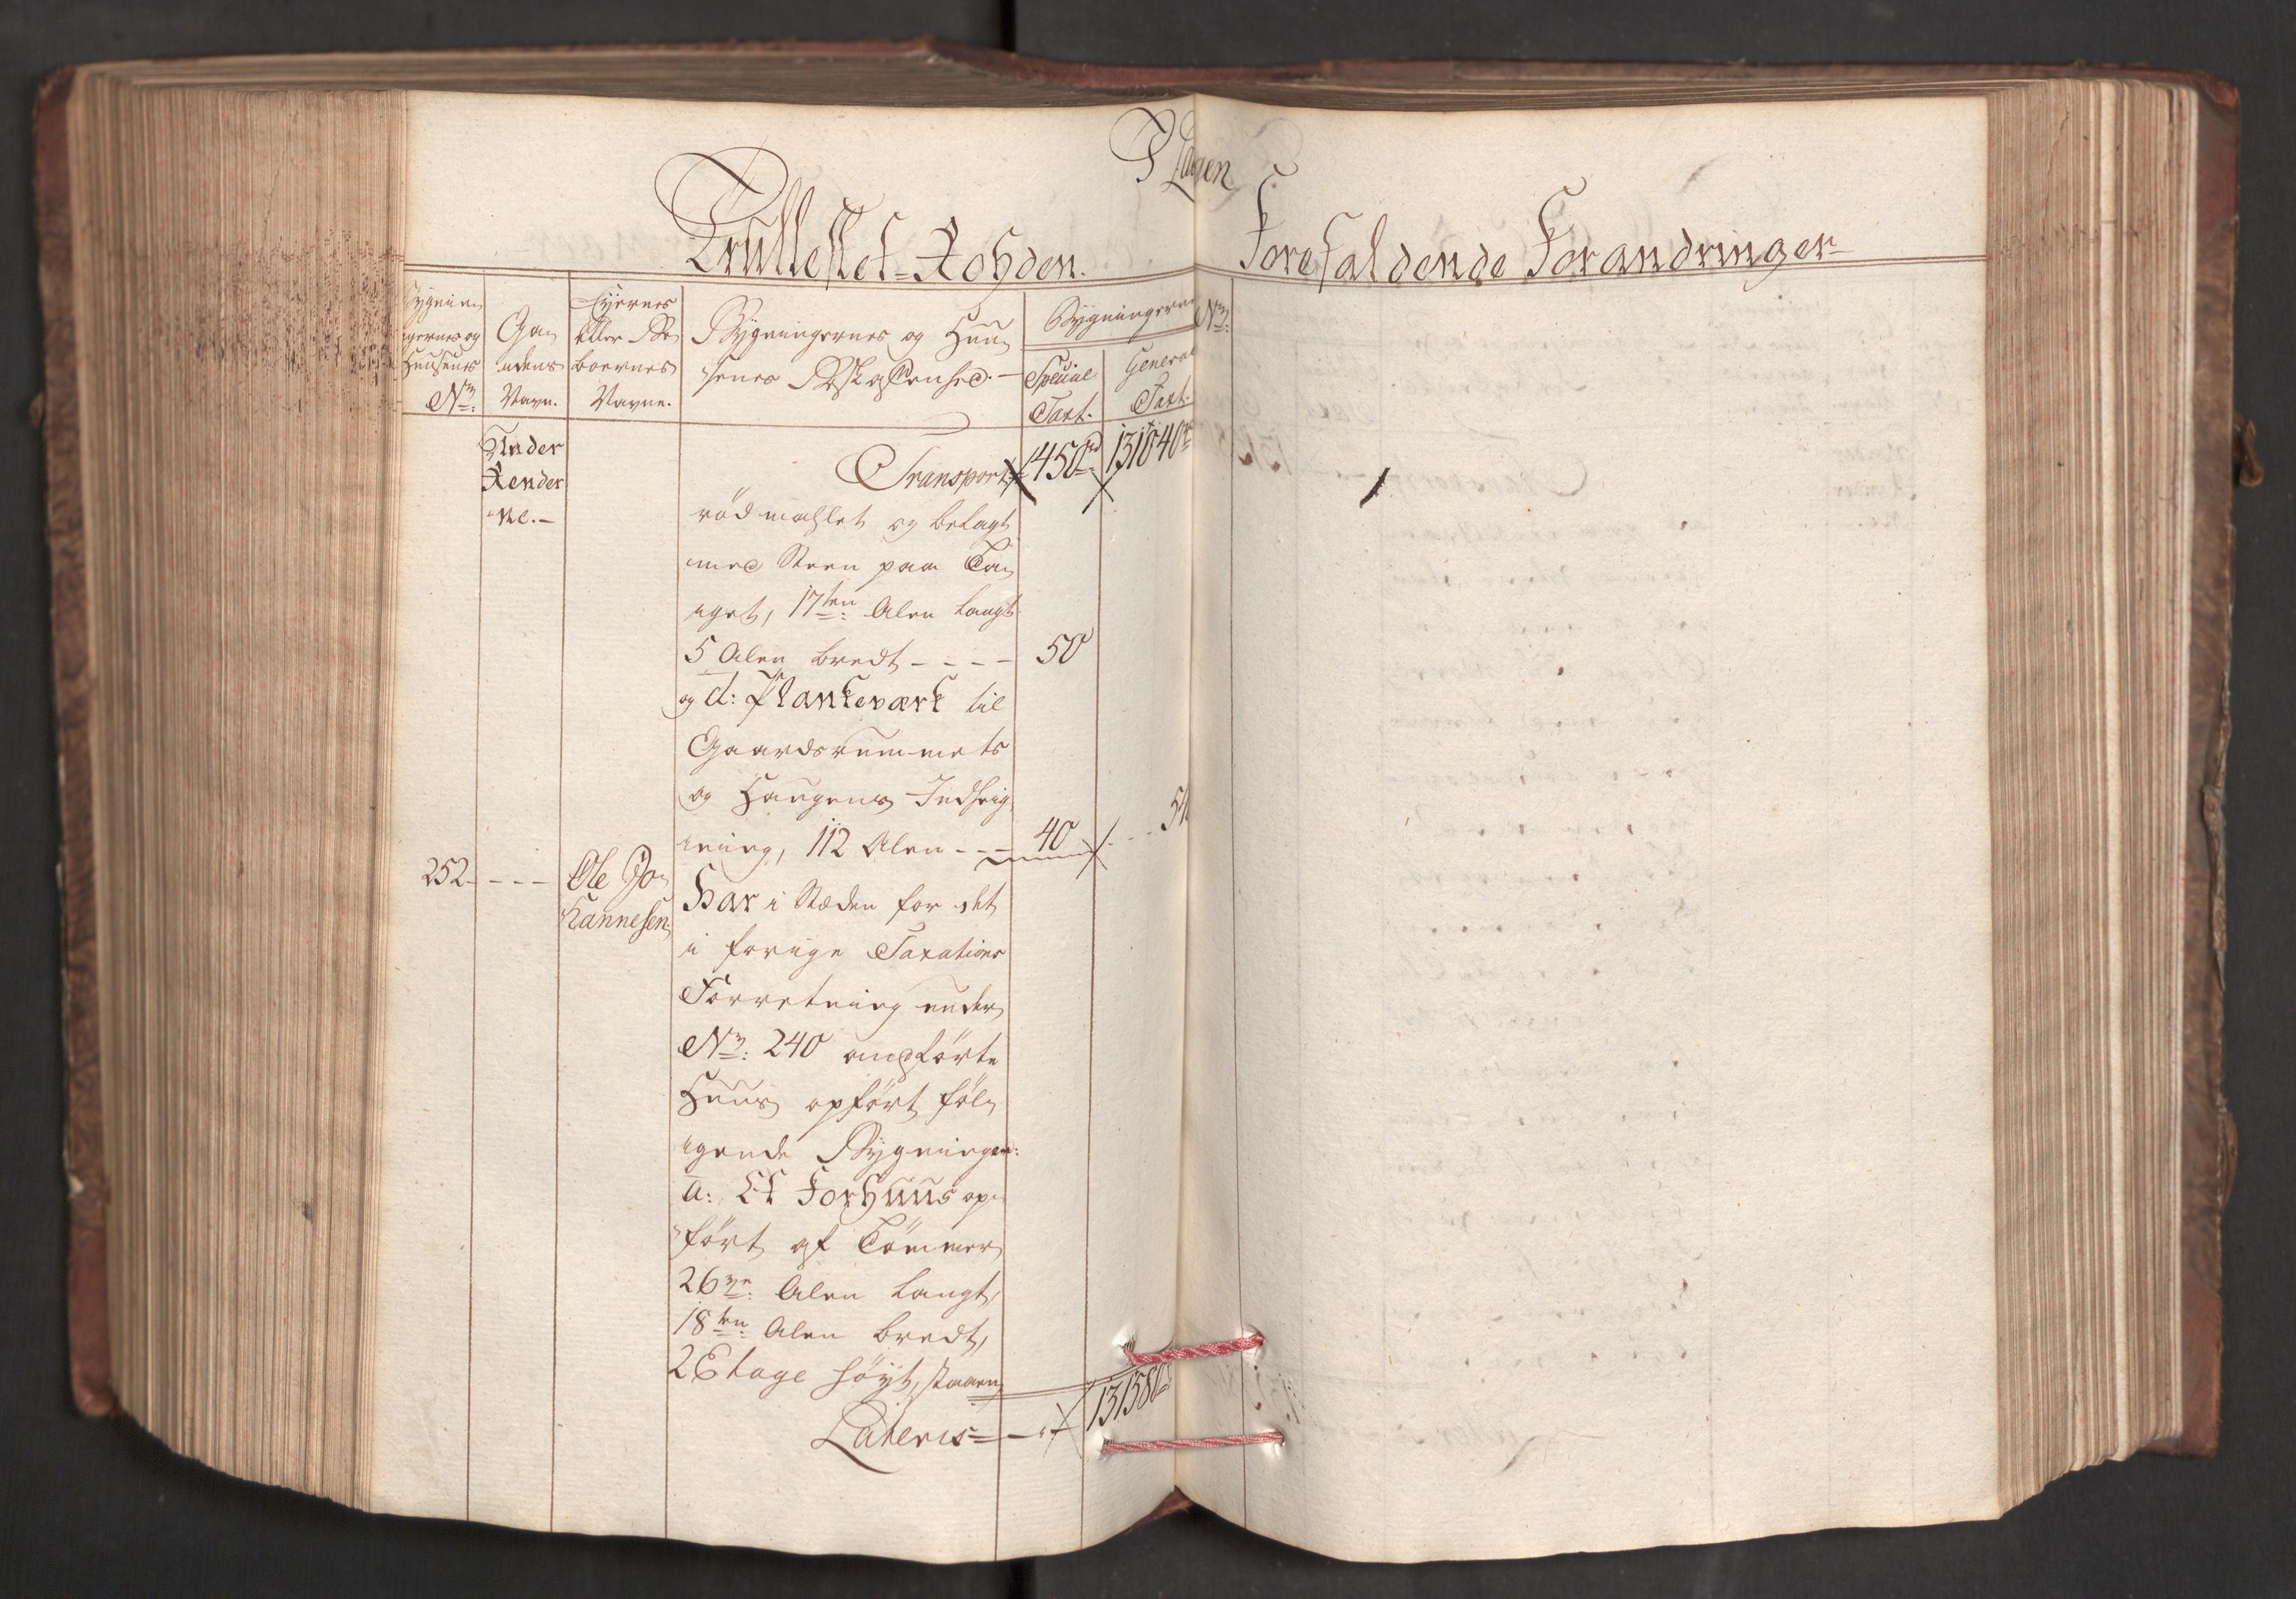 I Lagen
Forefaldende Forandringer
Bygnin
gernes og
Huusenes
No:
Gaa
rdens
Navn.
Eyernes
eller Be
boernes
Navne.
Bygningernes og Huu
senes Beskaffenhed.
Bygningernes
Special
Taxt.
General
Taxt.
No:
Under
Render
ne.
Transport 1450rd 131040rd
rödmahlet og belagt
med Steen paa Ta
get, 17ten Alen langt
5 Alen bredt - - - - 50
og d: Plankeværk til
Gaardsrummets
og Haugens Indheig
ning, 112 Alen - - - 40 - - 540
252 - - - Ole Jo
hannesen
Har i Stæden for det
i forrige Taxations
Forretning under
No: 240 anförte
Huus opfört föl
gende Bygninger:
a: Et Forhuus op
fört af Tömmer
26ve: Alen langt,
18ten: Alen bredt,
2 Etage höyt, staaen
Lateris - - 131580